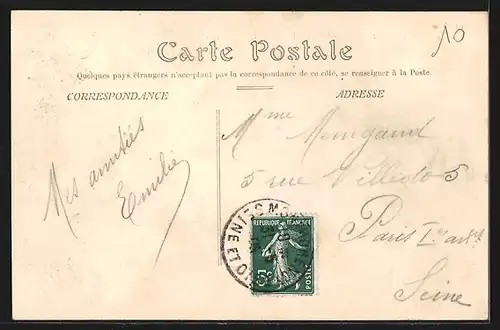 10
Carte Postale
Quelques pays étrangers n'acceptant pas la correspondance de ce côté, se renseigner à la Poste.
CORRESPONDANCE
ADRESSE
Mes amitiés
Emilie
Mme
5 rue Villedo 5
Paris 1er arrt
Seine
REPUBLIQUE FRANÇAISE
5c
POSTES
SEINE ET O